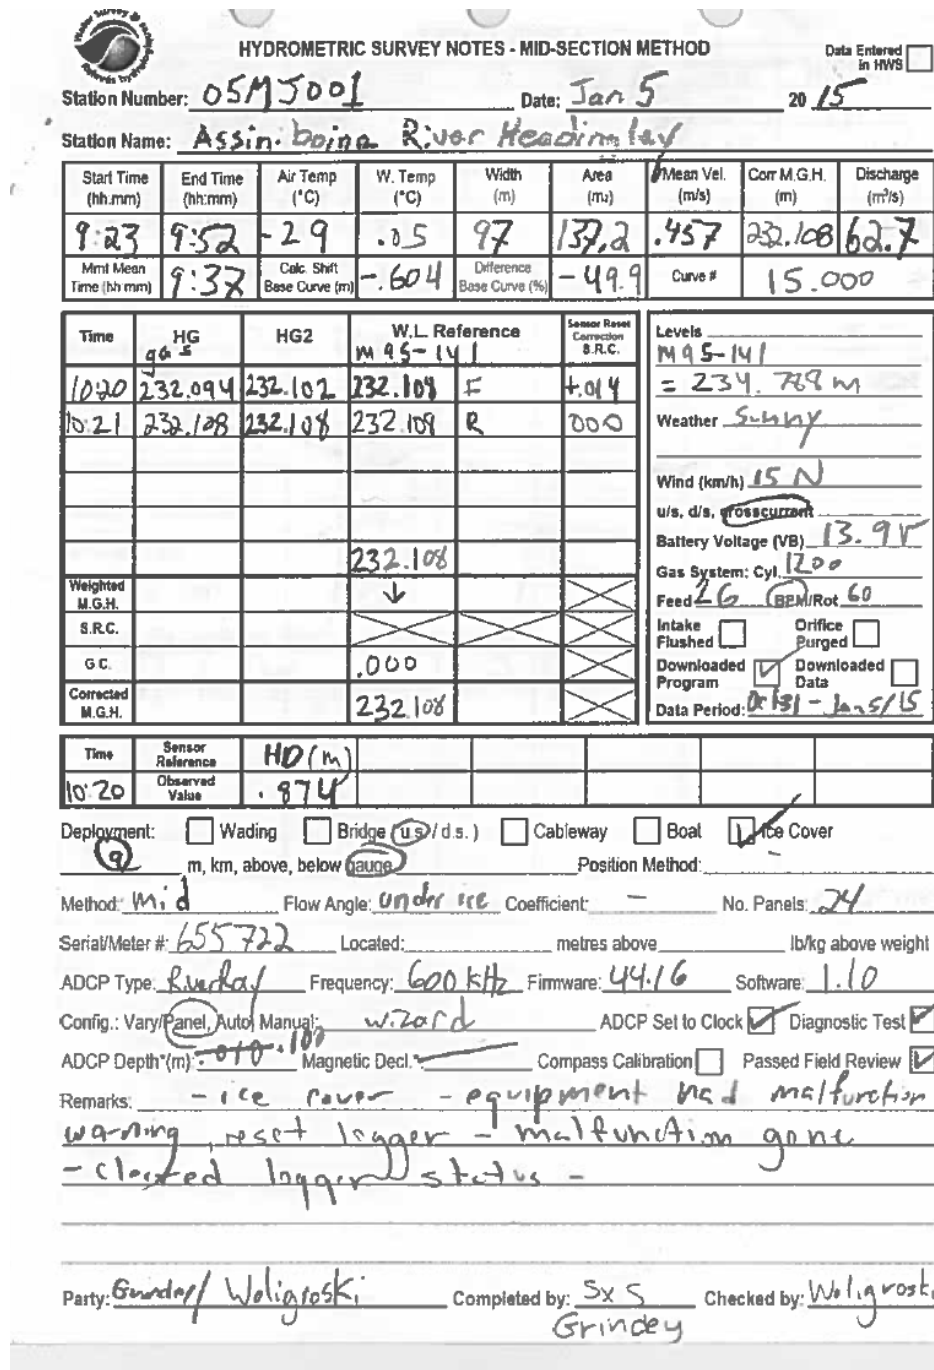 HYDROMETRIC SURVEY NOTES - MID-SECTION METHOD
Data Entered in HWS
Station Number: 05MJ001 Date: Jan 5 20 15
Station Name: Assiniboine River Headingley
Start Time (hh:mm) End Time (hh:mm) Air Temp (°C) W. Temp (°C) Width (m) Area (m²) Mean Vel. (m/s) Corr M.G.H. (m) Discharge (m³/s)
9:23 9:52 -29 .05 97 137.2 .457 232.108 62.7
Mmt Mean Time (hh:mm) 9:37 Calc. Shift Base Curve (m) -.604 Difference Base Curve (%) -49.9 Curve # 15.000
Time HG gas HG2 W.L. Reference M95-141 Sensor Reset Correction S.R.C.
10:20 232.094 232.102 232.108 F +.014
10:21 232.108 232.108 232.108 R 000
232.108
Weighted M.G.H. ↓
S.R.C.
G.C. .000
Corrected M.G.H. 232.108
Levels
M95-141
= 234.789 m
Weather Sunny
Wind (km/h) 15 N
u/s, d/s, crosscurrent
Battery Voltage (VB) 13.9V
Gas System: Cyl. 1200
Feed 26 BPM/Rot 60
Intake Flushed Orifice Purged
Downloaded Program Downloaded Data
Data Period: Oct 31 - Jan 5/15
Time Sensor Reference HD (m)
10:20 Observed Value .874
Deployment: Wading Bridge (u.s./d.s.) Cableway Boat Ice Cover
@ m, km, above, below gauge Position Method:
Method: Mid Flow Angle: under ice Coefficient: - No. Panels: 24
Serial/Meter #: 655722 Located: metres above lb/kg above weight
ADCP Type: RiverRay Frequency: 600 kHz Firmware: 44.16 Software: 1.10
Config.: Vary/Panel, Auto, Manual: wizard ADCP Set to Clock Diagnostic Test
ADCP Depth*(m): .010 .100 Magnetic Decl.*: Compass Calibration Passed Field Review
Remarks: - ice cover - equipment had malfunction
warning, reset logger - malfunction gone
- cleared logger status -
Party: Grindey/ Woligroski Completed by: SxS Checked by: Woligroski
Grindey